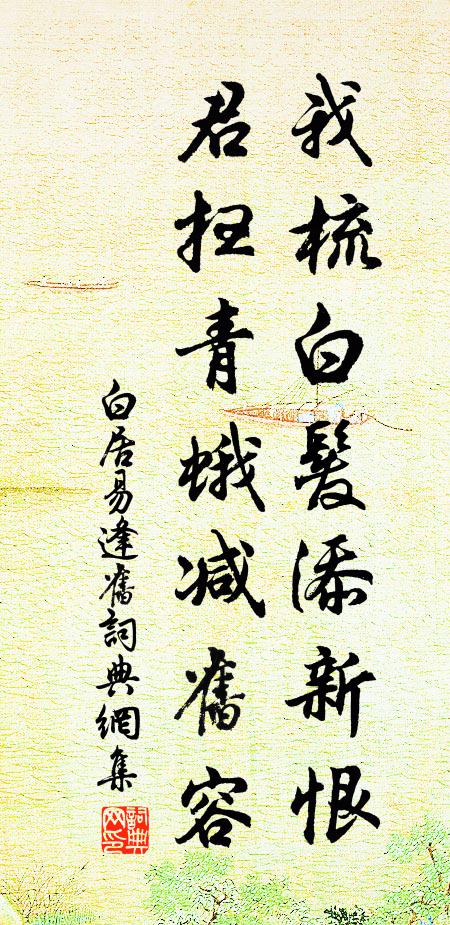 我梳白髮添新恨
君扫青蛾减舊容
白居易逢舊詞典網集
詞典网印